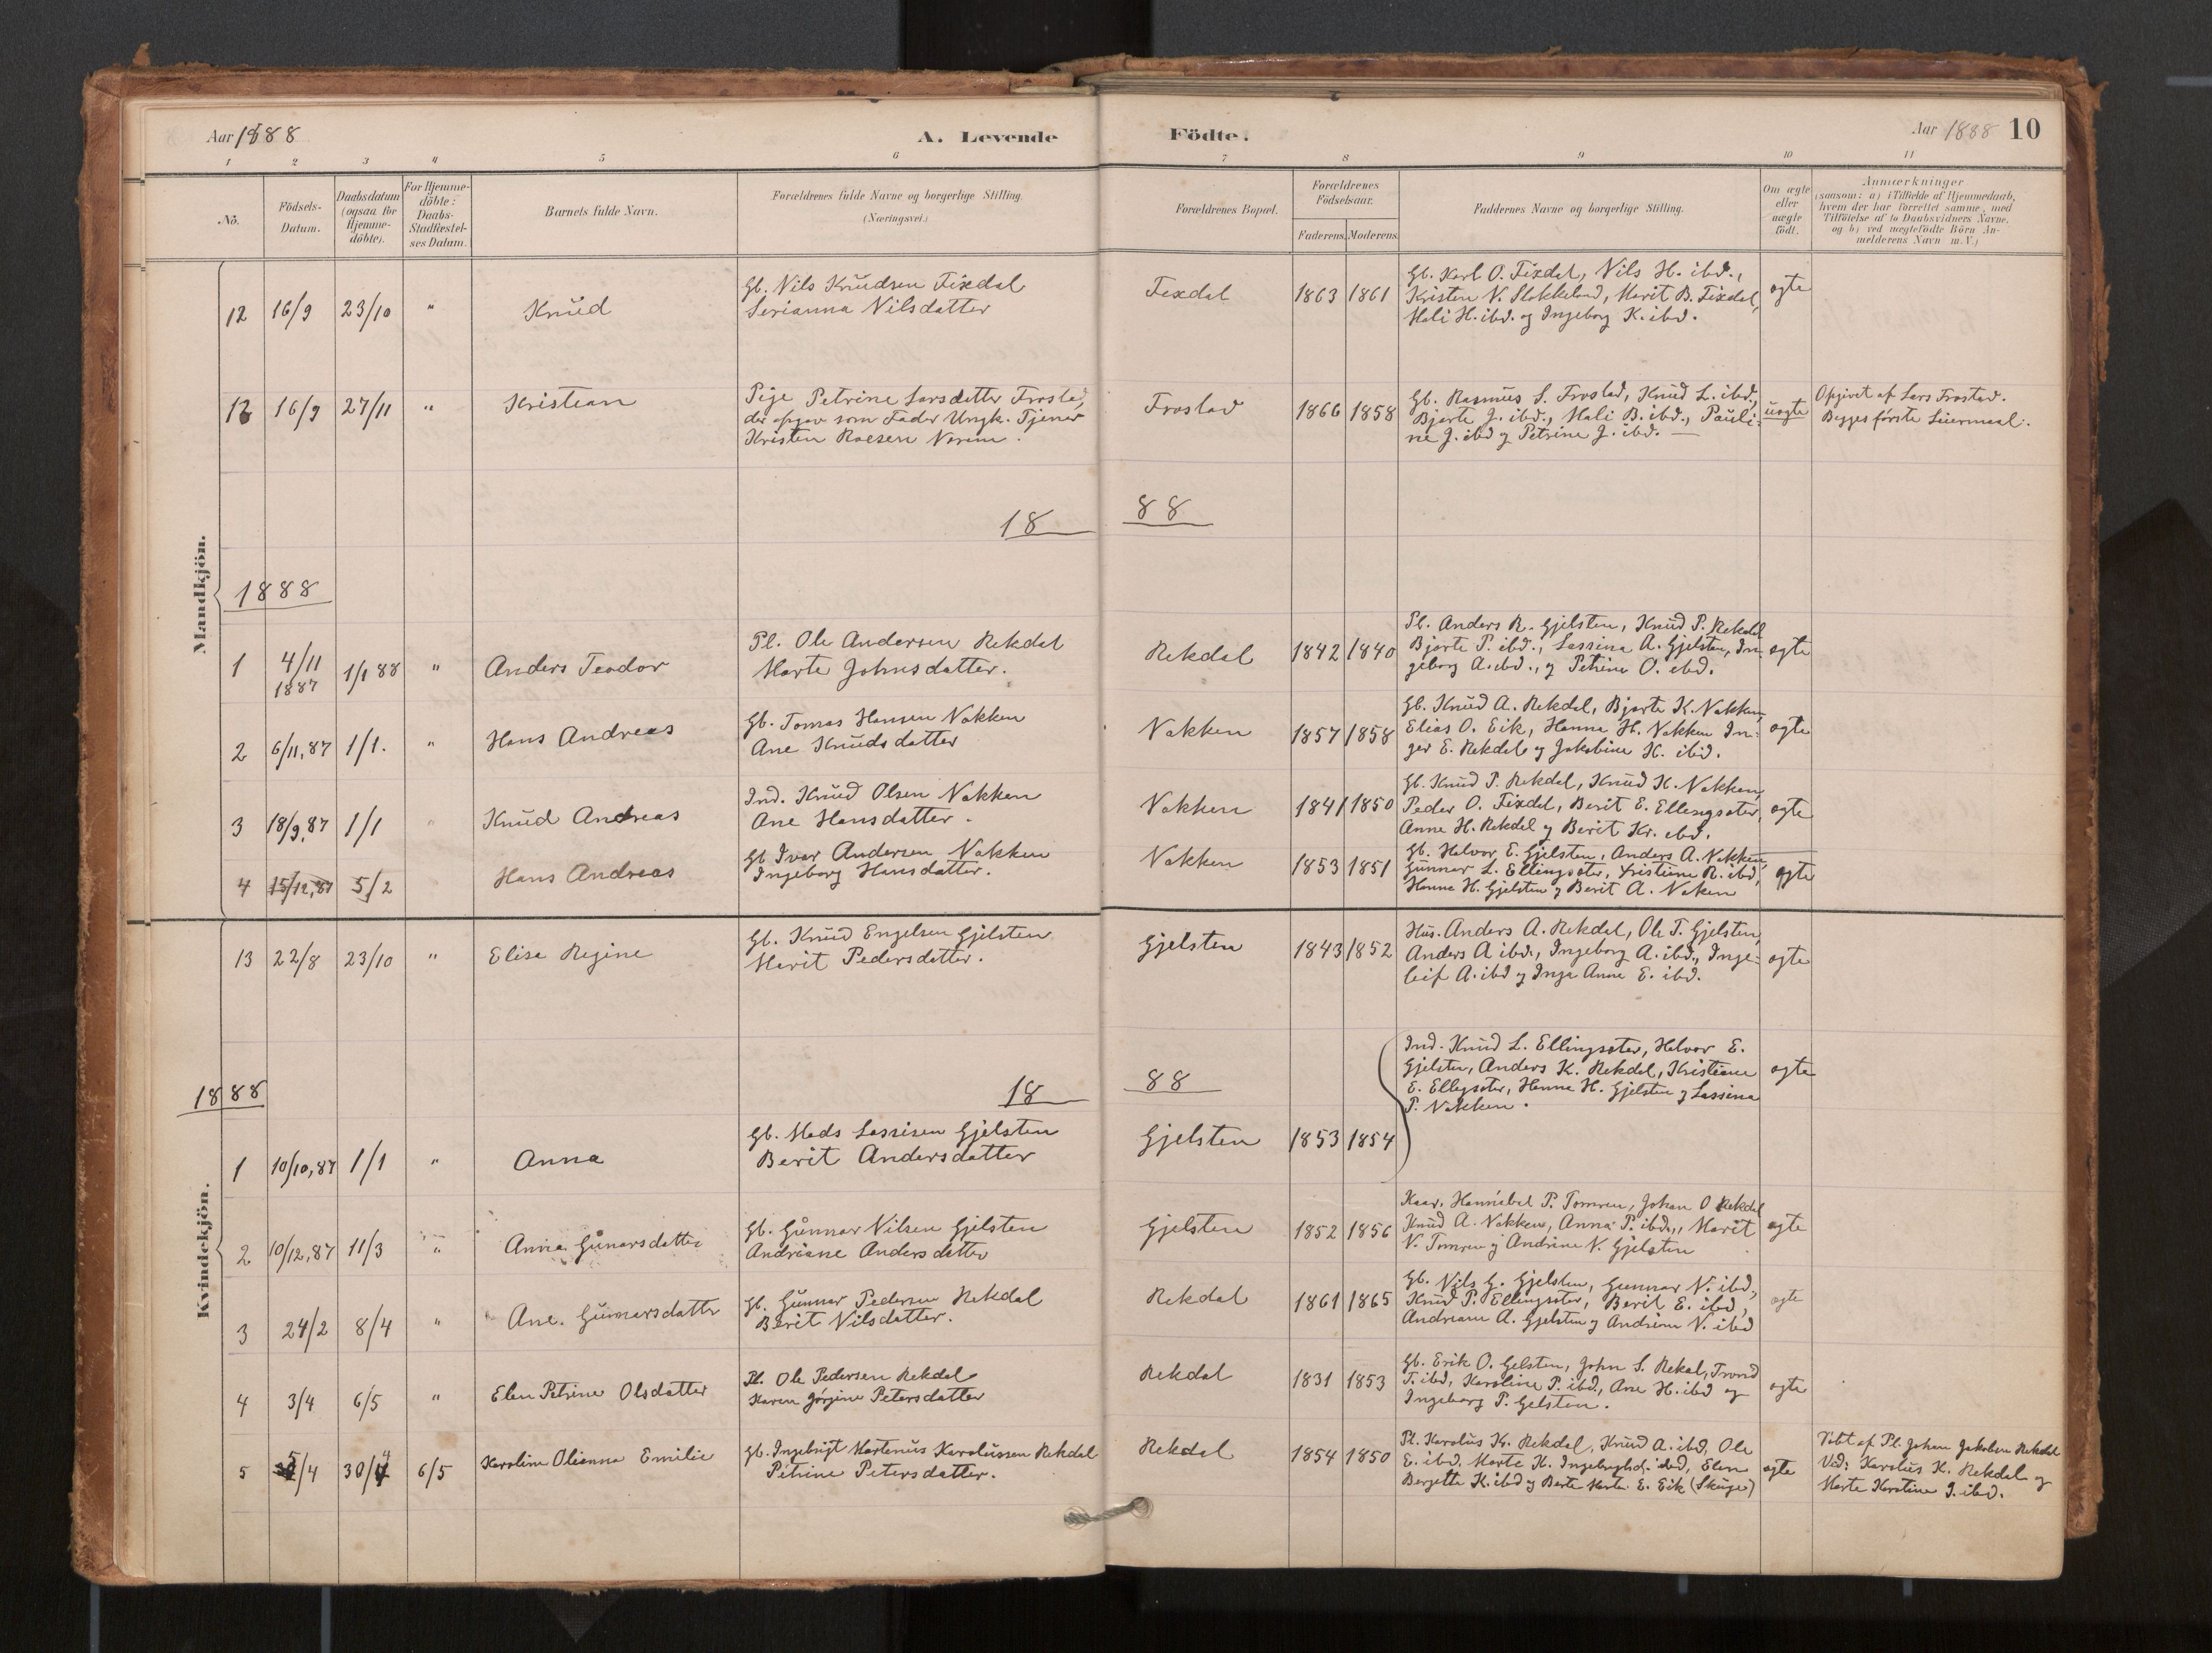 Aar 1888 A. Levende Födte. Aar 1888 10
1 2 3 4 5 6 7 8 9 10 11
No. Födsels-Datum. Daabsdatum (ogsaa for Hjemme-döbte). For Hjemme-döbte: Daabs-Stadfæstel-ses Datum. Barnets fulde Navn. Forældrenes fulde Navne og borgerlige Stilling. (Næringsvei.) Forældrenes Bopæl. Forældrenes Födselsaar. Faderens. Moderens. Faddernes Navne og borgerlige Stilling. Om ægte eller uægte födt. Anmærkninger (saasom: a) i Tilfælde af Hjemmedaab, hvem der har forrettet samme, med Tilföielse af to Daabsvidners Navne, og b) ved uægtefödte Börn An-melderens Navn m.V.)
Mandkjön.
12 16/9 23/10 " Knud
Gb. Nils Knudsen Fixdal
Serianna Nilsdatter
Fixdal 1863 1861
Gb. Karl O. Fixdal, Nils H. ibd.,
Kristen N. Stokkeland, Marit B. Fixdal,
Mali H. ibd. og Ingeborg K. ibd.
ogte
12 16/9 27/11 " Kristian
Pige Petrine Larsdatter Frostad,
der opgav som Fader Ungk. Tjener
Kristen Roesen
Frostad 1866 1858
Gb. Rasmus S. Frostad, Knud L. ibd.,
Bjarte J. ibd., Mali B. ibd., Pauli-
ne J. ibd og Petrine J. ibd.
uogte
Opgivet af Lars Frostad.
Begges første Leiermaal.
18 88
1888
1 4/11 1887 1/1 88 " Anders Teodor
Pl. Ole Andersen Rekdal
Marte Johnsdatter.
Rekdal 1842 1840
Pl. Anders R. Gjelsten, Knud P. Rekdal
Bjarte P. ibd., Lassina A. Gjelsten, In-
geborg A. ibd., og Petrine O. ibd.
ogte
2 6/11,87 1/1. " Hans Andreas
Gb. Tomas Hansen Nakken
Ane Knudsdatter
Nakken 1857 1858
Gb. Knud A. Rekdal, Bjarte K. Nakken,
Elias O. Eik, Hanna H. Nakken In-
ger E. Rekdal og Jakobine K. ibid.
ogte
3 18/9,87 1/1 " Knud Andreas
Ind. Knud Olsen Nakken
Ane Hansdatter.
Nakken 1841 1850
Gb. Knud P. Rekdal, Knud K. Nakken,
Peder O. Fixdal, Berit E. Ellengsæter,
Anne H. Rekdal og Berit Kr. ibd.
ogte
4 15/12,87 5/2 Hans Andreas
Gb Ivar Andersen Nakken
Ingeborg Hansdatter.
Nakken 1853 1851
Gb. Halvor E. Gjelsten, Anders A. Nakken,
Gunnar L. Ellingsæter, Kristiane R. ibd,
Hanna H. Gjelsten og Berit A. Naken
ogte
Kvindekjön.
13 22/8 23/10 " Elise Regine
Gb. Knud Engelsen Gjelsten
Marit Pedersdatter.
Gjelsten 1843 1852
Hus. Anders A. Rekdal, Ole T. Gjelsten,
Anders A ibd., Ingeborg A. ibd., Inge-
leif A. ibd og Inga Anne E. ibd.
ogte
1888 18 88
1 10/10,87 1/1 " Anna
Gb. Mads Lassisen Gjelsten
Berit Andersdatter
Gjelsten 1853 1854
Ind. Knud L. Ellingsæter, Halvor E.
Gjelsten, Anders K. Rekdal, Kristiane
E. Ellegsæter, Hanna H. Gjelsten og Lassina
P. Nakken.
ogte
2 10/12,87 11/3 " Anna Gunarsdatter
Gb. Gunnar Nilsen Gjelsten
Andriane Andersdatter
Gjelsten 1852 1856
Kaar. Hannibal P. Tomren, Johan O Rekdal
Knud A. Nakken, Anna P. ibd., Marit
N. Tomren og Andrine N. Gjelsten
ogte
3 24/2 8/4 " Ane. Gunnarsdatter
Gb. Gunnar Pedersen Rekdal
Berit Nilsdatter.
Rekdal 1861 1865
Gb. Nils G. Gjelsten, Gunnar N. ibd,
Knud P. Ellingsæter, Berit E. ibd,
Andreane A. Gjelsten og Andrine N. ibd
ogte
4 3/4 6/5 " Elen Petrine Olsdatter
Pl. Ole Pedersen Rekdal
Karen Jørgine Petersdatter
Rekdal 1831 1853
Gb. Erik O. Gelsten, John S. Rekal, Trond
T. ibd, Karoline P. ibd., Ane H. ibd og
Ingeborg P. Gelsten.
ogte
5 5/4 30/4 6/5 Karoline Olianna Emilie
Gb. Ingebrigt Martenus Karolussen Rekdal
Petrine Petersdatter.
Rekdal 1854 1850
Pl. Karolus Kr. Rekdal, Knud A. ibd, Ole
E. ibd. Marte K. ibd, Elen
Bergette K. ibd og Berte Marta E. Eik (Skuge)
ogte
Døbt af Pl. Johan Jakobsen Rekdal
Vid: Karolus K. Rekdal og
Marte Karstine J. ibd.